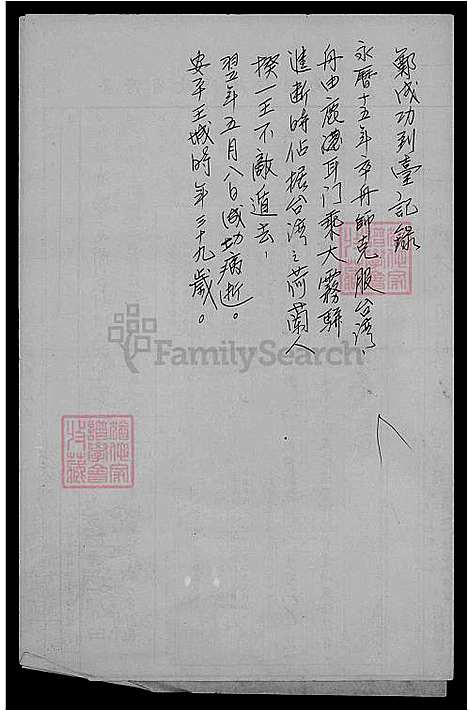 鄭成功到臺記錄
永曆十五年卒舟師克服台湾,
舟由鹿港耳门乘大霧駢
進断時佔据台湾之荷蘭人
揆一王不敵遁去,
翌年五月八日成功病逝。
安平王城時年三十九歲。
FamilySearch